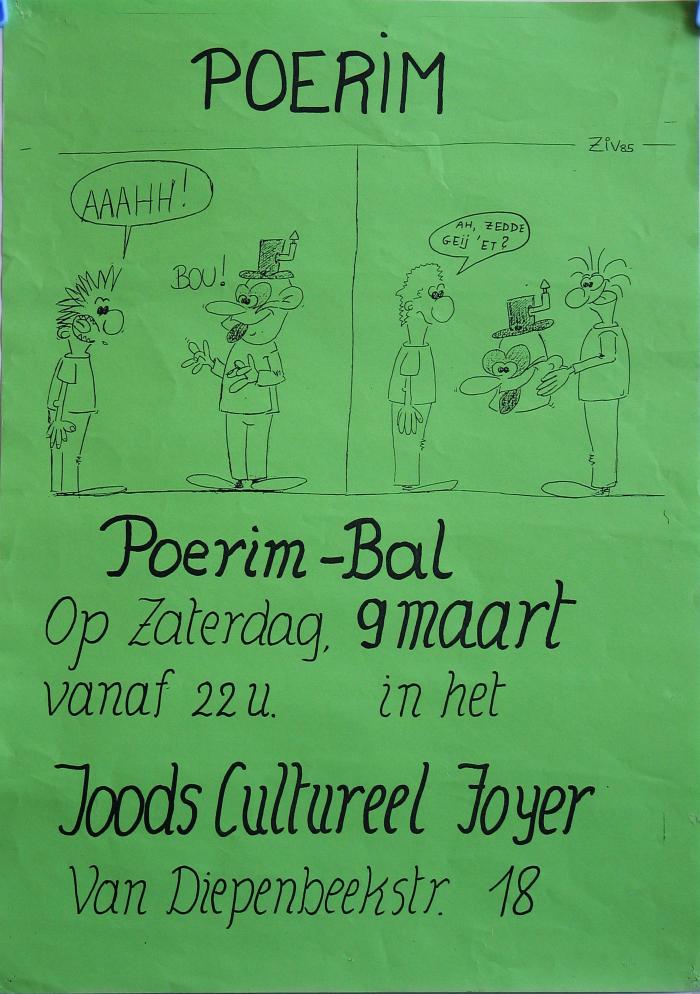 POERIM
ZIV85
AAAHH!
BOU!
AH, ZEDDE
GEIJ 'ET?
Poerim-Bal
Op Zaterdag, 9 maart
vanaf 22u. in het
Joods Cultureel Foyer
Van Diepenbeekstr. 18